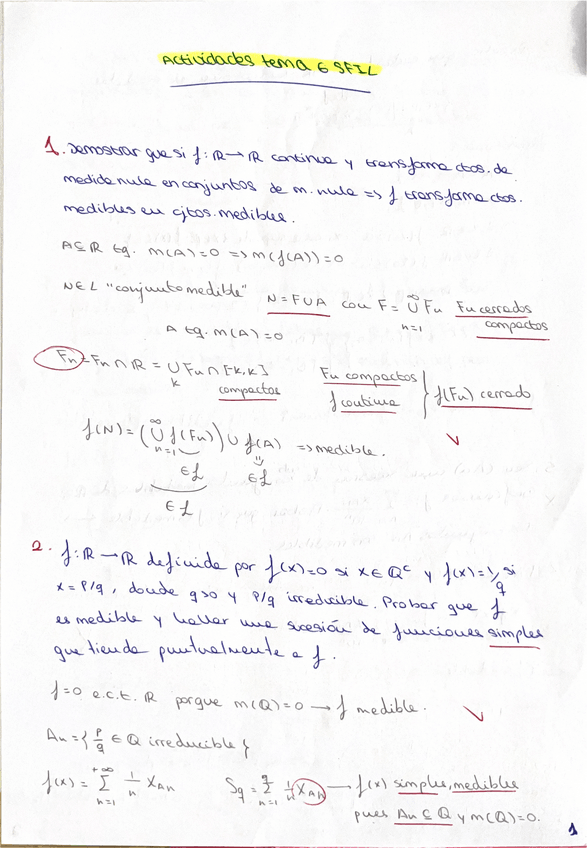 Actividades tema 6 SFIL
1. Demostrar que si f: ℝ → ℝ continua y transforma ctos. de
medida nula en conjuntos de m. nula => f transforma ctos.
medibles en cjtos. medibles.
A ⊆ ℝ tq. m(A) = 0 => m(f(A)) = 0
N ∈ L "conjunto medible" N = F ∪ A con F = ∪_{n=1}^{∞} Fn Fn cerrados
compactos
A tq. m(A) = 0
Fn = Fn ∩ ℝ = ∪_k Fn ∩ [-k,k]
compactos
Fn compactos
f continua } f(Fn) cerrado
f(N) = (∪_{n=1}^{∞} f(Fn)) ∪ f(A) => medible.
∈ L ∈ L
∈ L
2. f: ℝ → ℝ definida por f(x) = 0 si x ∈ ℚᶜ y f(x) = 1/q, si
x = p/q, donde q>0 y p/q irreducible. Probar que f
es medible y hallar una sucesión de funciones simples
que tienda puntualmente a f.
f = 0 e.c.t. ℝ porque m(ℚ) = 0 → f medible.
An = { p/q ∈ ℚ irreducible }
f(x) = Σ_{n=1}^{+∞} 1/n χ_{An} Sq = Σ_{n=1}^{q} 1/n χ_{An} → f(x) simples, medibles
pues An ⊆ ℚ y m(ℚ) = 0.
1